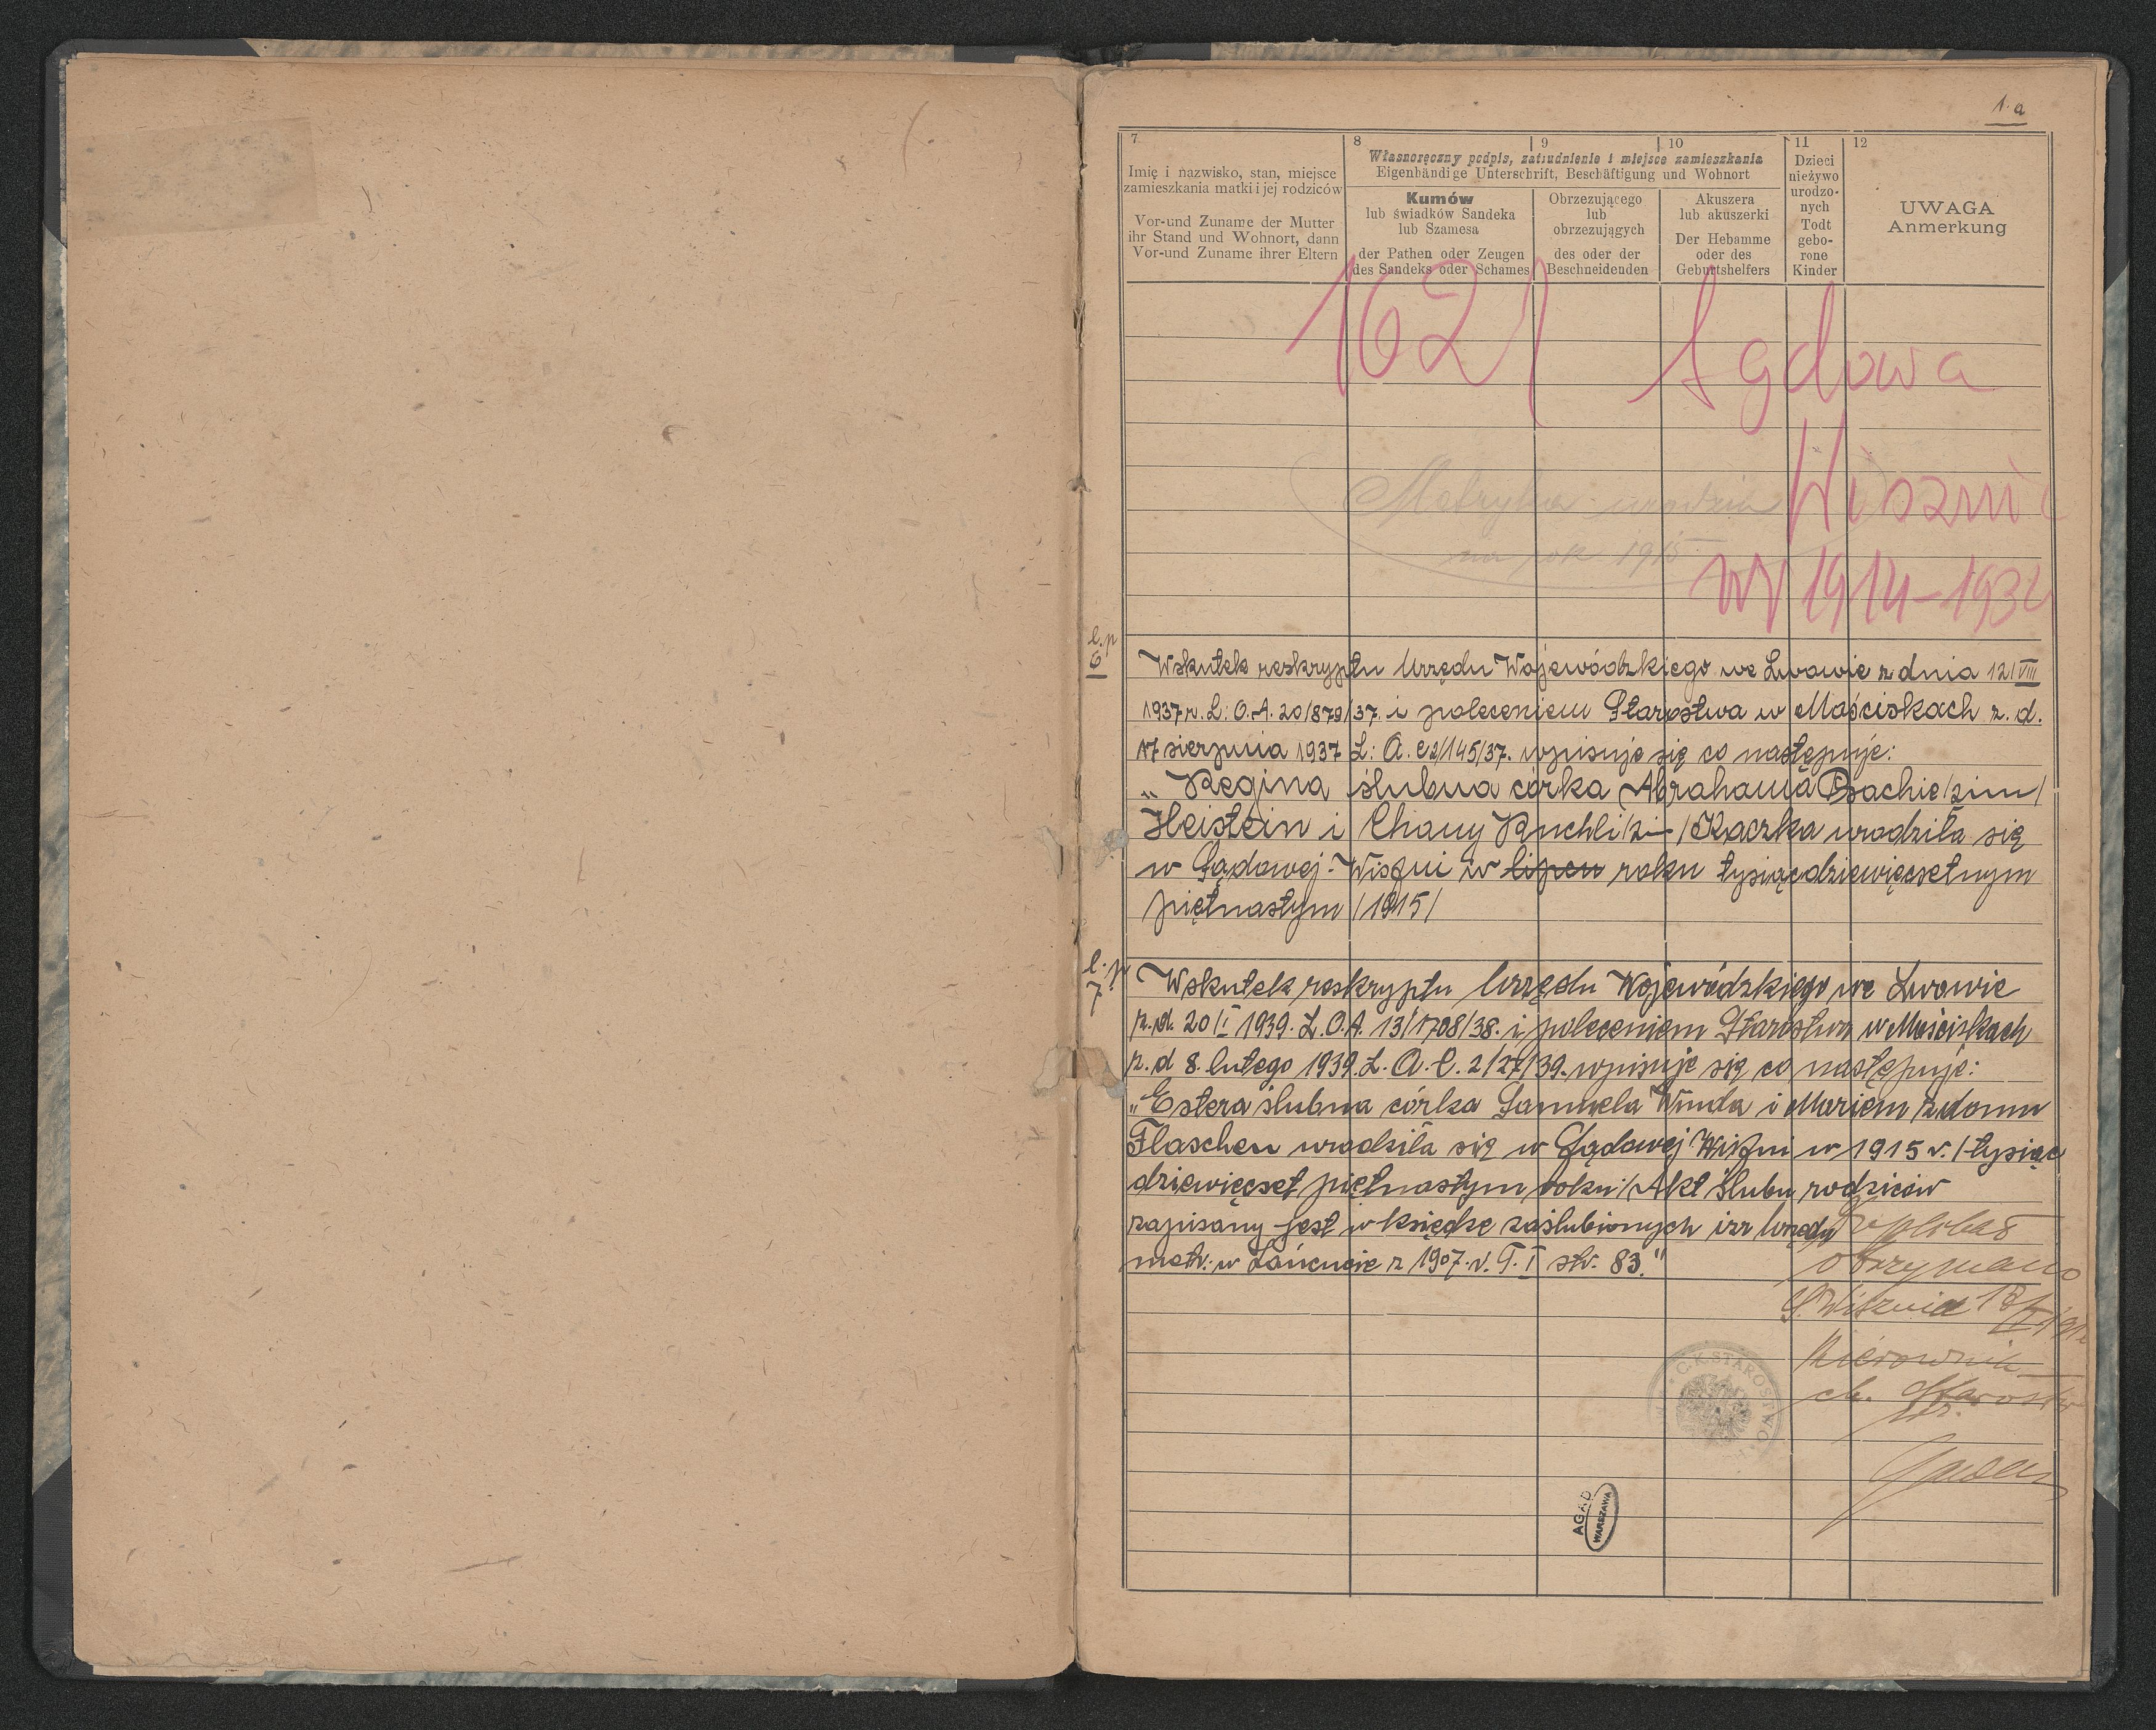 1.a
7
Imię i nazwisko, stan, miejsce
zamieszkania matki i jej rodziców
Vor-und Zuname der Mutter
ihr Stand und Wohnort, dann
Vor-und Zuname ihrer Eltern
8
9
10
Własnoręczny podpis, zatrudnienie i miejsce zamieszkania
Eigenhändige Unterschrift, Beschäftigung und Wohnort
Kumów
lub świadków Sandeka
lub Szamesa
der Pathen oder Zeugen
des Sandeks oder Schames
Obrzezującego
lub
obrzezujących
des oder der
Beschneidenden
Akuszera
lub akuszerki
Der Hebamme
oder des
Geburtshelfers
11
Dzieci
nieżywo
urodzo-
nych
Todt
gebo-
rone
Kinder
12
UWAGA
Anmerkung
1621 Sądowa
Wisznia
1914-1932
Metryka urodzin
na rok 1915
l.p
6
Wskutek reskryptu Urzędu Wojewódzkiego we Lwowie z dnia 12/VIII
1937 r. L: O.A. 20/879/37. i poleceniem Starostwa w Mościskach z. d.
17 sierpnia 1937 L: A. C2/145/37. wpisuje się co następuje:
„Regina ślubna córka Abrahama Psachie /zim/
Heistein i Chany Ruchli /zi-/ Kaczka urodziła się
w Sądowej-Wiszni w lipcu roku tysiącdziewięcsetnym
piętnastym /1915/
l.p
7
Wskutek reskryptu Urzędu Wojewódzkiego we Lwowie
z.d. 20/I 1939. L.O.A. 13/1708/38. i poleceniem Starostwa w Mościskach
z. d 8. lutego 1939. L. A. C. 2/27/39. wpisuje się co następuje:
„Estera ślubna córka Samuela Winda i Mariem z domu
Flaschen urodziła się w Sądowej Wiszni w 1915 r. /tysiąc
dziewięcset piętnastym roku/ Akt ślubu rodziców
zapisany jest w księdze zaślubionych izr Urzędu
metr. w Łańcucie z 1907. r. T. I str. 83."
otrzymano
S. Wisznia 18/
Kierownik
ck. Starostw
C.K. STAROSTWO
AGAD
WARSZAWA